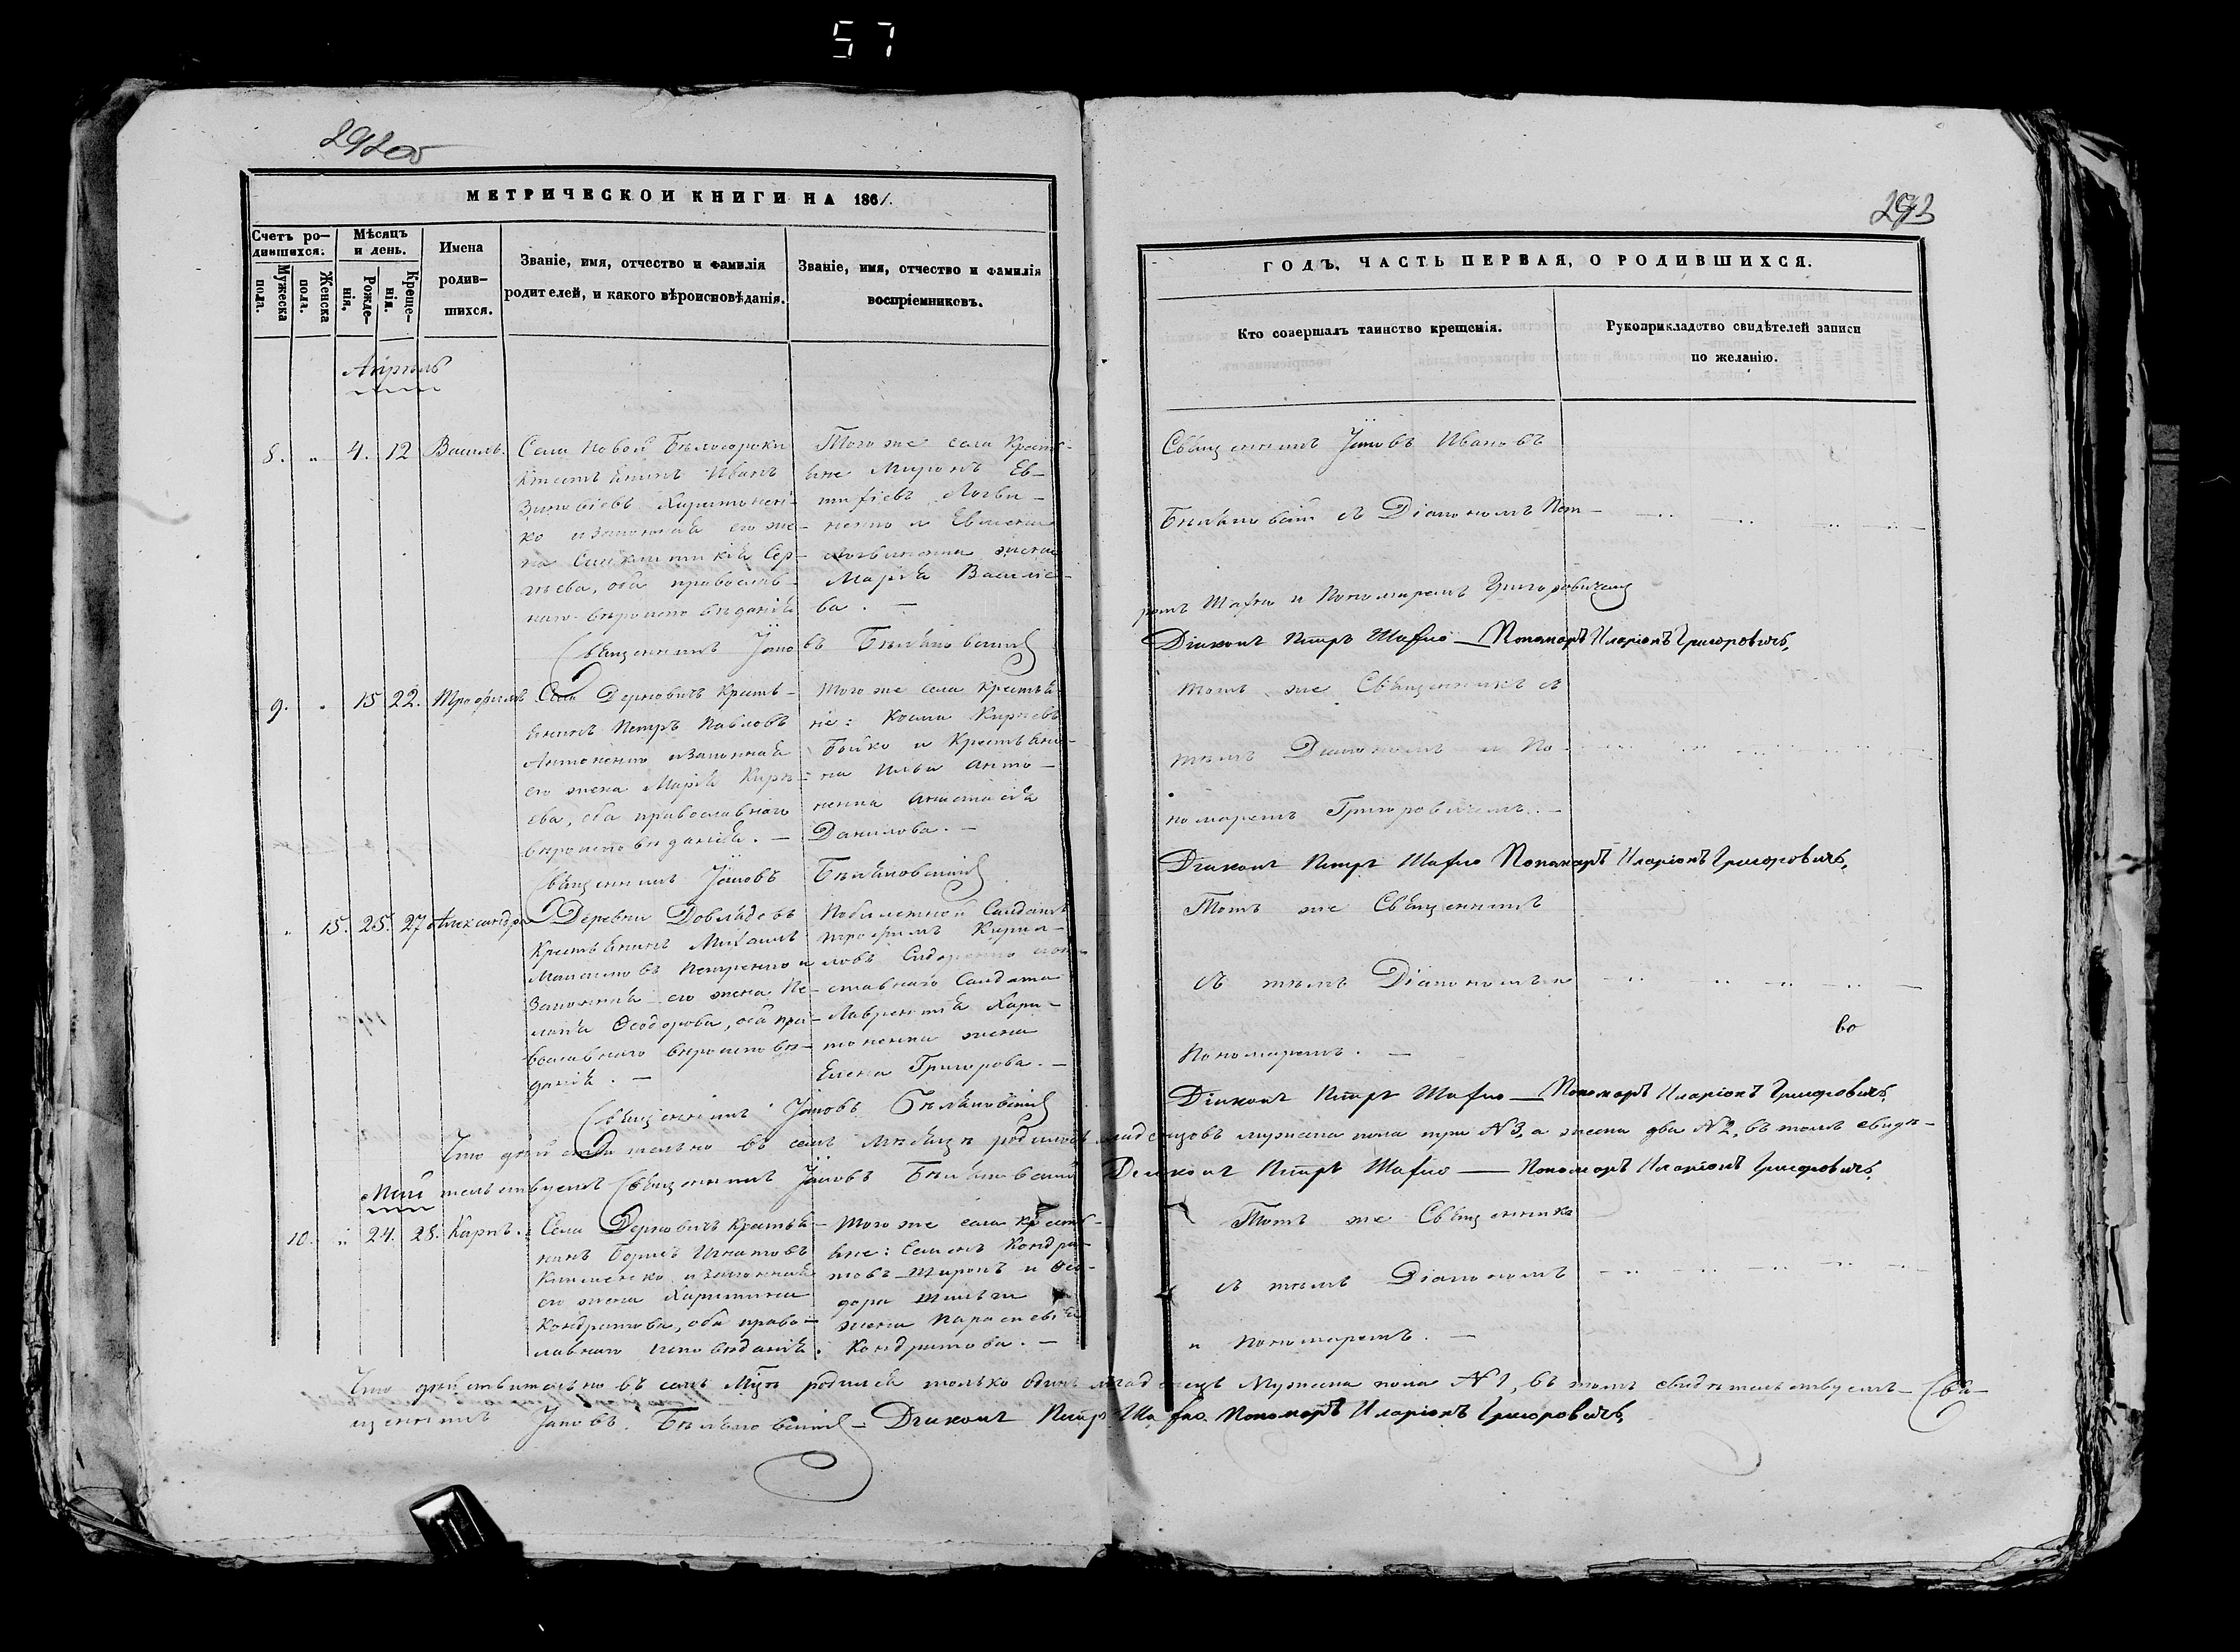 57
292об
МЕТРИЧЕСКОЙ КНИГИ НА 1861.
Счетъ ро-
дившихся.
Мужеска
пола.
Женска
пола.
Мѣсяцъ
и день.
Рожде-
нія.
Креще-
нія.
Имена
родив-
шихся.
Званіе, имя, отчество и фамилія
родителей, и какого вѣроисповѣданія.
Званіе, имя, отчество и фамилія
воспріемниковъ.
Апрѣль
8. " 4. 12 Василь.
Села Новой Бѣлосороки
Крестьянинъ Иванъ
Зиновіевъ Харитонен-
ко изаконная его же-
на Сер-
гѣева, оба православ-
наго вѣроисповѣданія
Того же села Кресть-
яне Миронъ Ев-
тифіевъ Логви-
ненко и
жена
Марія Василіе-
ва. —
Священникъ Іаковъ
9. " 15 22. Трофимъ
Села Дерновичъ Кресть-
янинъ Петръ Павловъ
Антоненко изаконная
его жена Марія Кирѣ-
ева, оба православнаго
вѣроисповѣданія. —
Того же села Крестья-
не: Косма Кирѣевъ
Бойко и Крестьяни-
на Ильи Анто-
ненка Анастасія
Данилова. —
Священникъ Іаковъ
" 15. 25. 27 Александра
Деревни Довлядовъ
Крестьянинъ Михаилъ
Петренко и
Законная его жена Пе-
лагія Ѳеодорова, оба пра-
вославнаго вѣроисповѣ-
данія. —
Солдатъ
Трофимъ Кирил-
ловъ Сидоренко и от-
ставнаго Солдата
Лаврентія Хари-
тоненка жена
Елена Григорова. —
Священникъ Іаковъ
Что дѣйствительно въ семъ мѣсяцѣ родилось младенцовъ мужеска пола три №3, а женска два №2, въ томъ свидѣ-
тельствуемъ Священникъ Іаковъ Діаконъ Петръ — Пономарь Иларіонъ Григоровичъ
Май
10. " 24. 28. Карпъ.
Села Дерновичъ Крестья-
нинъ Борисъ Игнатовъ
Клименко изаконная
его жена Харитина
Кондратова, оба право-
славнаго исповѣданія.
Того же села Кресть-
яне: Семенъ Кондра-
товъ и Ѳео-
дора
жена Параскевія
Кондратова. —
Что дѣйствительно въ семъ Мцѣ родился только одинъ младенецъ Мужеска пола №1, въ томъ свидѣтельствуемъ — Свя-
щенникъ Іаковъ Діаконъ Петръ Пономарь Иларіонъ Григоровичъ
293
ГОДЪ, ЧАСТЬ ПЕРВАЯ, О РОДИВШИХСЯ.
Кто совершалъ таинство крещенія.
Рукоприкладство свидѣтелей записи
по желанію.
Священникъ Іаковъ Ивановъ
съ Діакономъ Пет-
ромъ и Пономаремъ Григоровичемъ
Діаконъ Петръ — Пономарь Иларіонъ Григоровичъ
Тотъ же Священникъ съ
тѣмъ Діакономъ и По-
номаремъ Григоровичемъ. —
Діаконъ Петръ Пономарь Иларіонъ Григоровичъ
Тотъ же Священникъ
съ тѣмъ Діакономъ и
Пономаремъ. —
во
Діаконъ Петръ — Пономарь Иларіонъ Григоровичъ
Тотъ же Священникъ
съ тѣмъ Діакономъ
и Пономаремъ. —